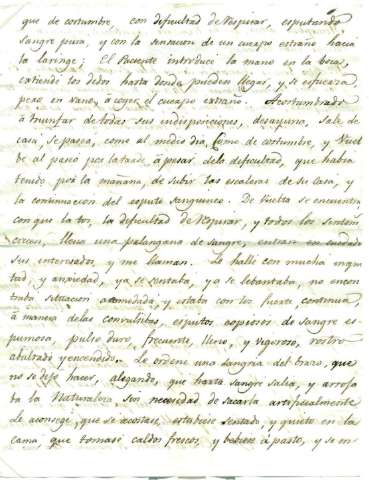 que de costumbre, con dificultad de respirar, esputando
sangre pura, y con la sensacion de un cuerpo estraño hacia
la laringe; El Paciente introduce la mano en la boca,
extiende los dedos hasta donde pueden llegar, y se esfuerza
pero en vano, à coger el cuerpo extraño. Acostumbrado
à triunfar de todas sus indisposiciones, desayuna, sale de
casa, se pasea, come al medio dia, como de costumbre, y vuel
be al paseo por la tarde, à pesar dela dificultad, que habia
tenido por la mañana, de subir las escaleras de su casa, y
la continuacion del esputo sanguineo. De vuelta se encuentra
con que la tos, la dificultad de respirar, y todos los sintom
crecen, llena una palangana de sangre, entran en cuidado
sus interesados, y me llaman. Le hallè con mucha inquie
tud, y anxiedad, ya se sentaba, ya se lebantaba, no encon
traba situacion acomodada, y estaba con tos fuerte continua,
à manera delas convulsibas, esputos copiosos de sangre es
pumosa, pulso duro, frecuente, lleno, y vigoroso, rostro
abultado y encendido. Le ordenè una sangria del brazo, que
no se dejò hacer, alegando, que harta sangre salia, y arroja
ba la Naturaleza sin necesidad de sacarla artificialmente
le aconsegè, que se acostase, estubiese sentado, y quieto en la
cama, que tomase caldos frescos, y bebiese à pasto, y se en